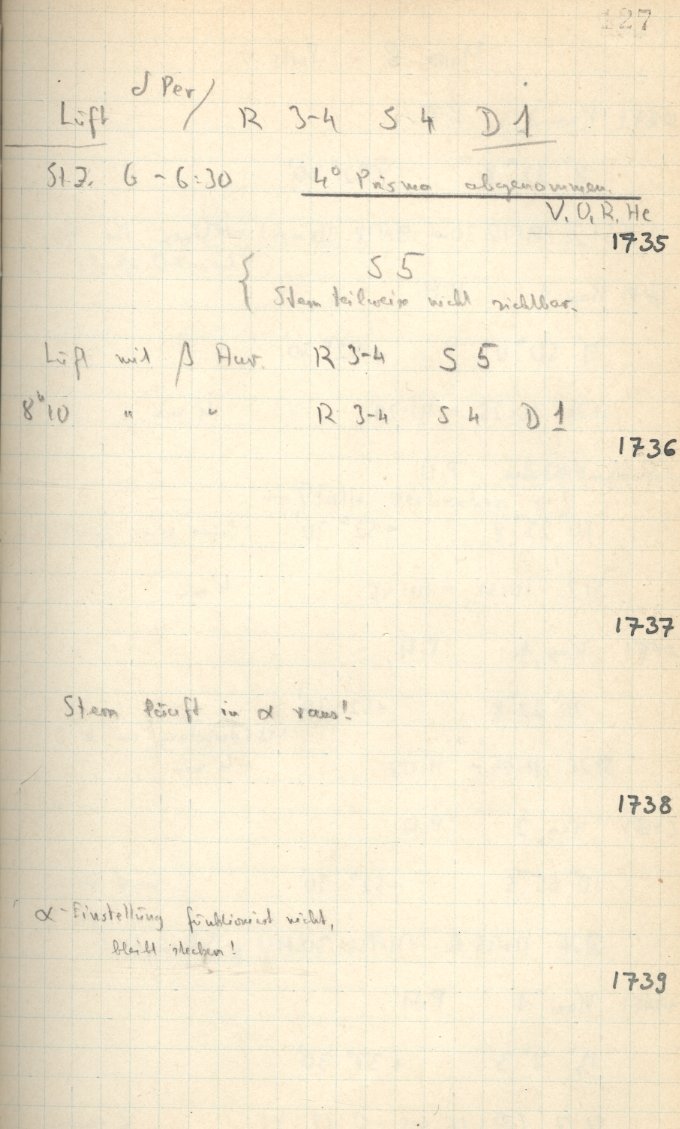 127
δ Per
Luft / R 3-4 S 4 D 1
St.Z. 6 - 6:30 4° Prisma abgenommen.
V, O, R, He
1735
S 5
Stern teilweise nicht sichtbar.
Luft mit β Aur. R 3-4 S 5
8h10 " " R 3-4 S 4 D 1
1736
1737
Stern läuft in α raus!
1738
α-Einstellung funktioniert nicht,
bleibt stecken!
1739